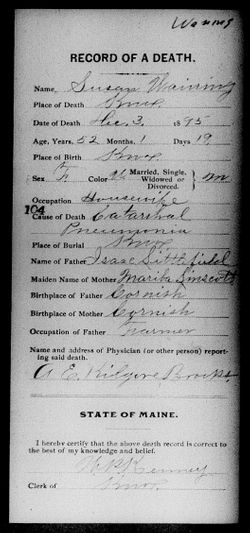 Waning
RECORD OF A DEATH.
Name, Susan Waining
Place of Death Knox
Date of Death Dec. 3, 1895
Age, Years, 52 Months, 1 Days 19
Place of Birth Knox
Sex F Color W Married, Single, Widowed or Divorced. } M
Occupation Housewife
104
Cause of Death Catarrhal
Pneumonia
Place of Burial Knox
Name of Father Isaac Littlefield
Maiden Name of Mother Linscott
Birthplace of Father Cornish
Birthplace of Mother Cornish
Occupation of Father Farmer
Name and address of Physician (or other person) reporting said death.
A. E. Kilgore Brooks.
STATE OF MAINE.
I hereby certify that the above death record is correct to
the best of my knowledge and belief.
Kenney
Clerk of Knox